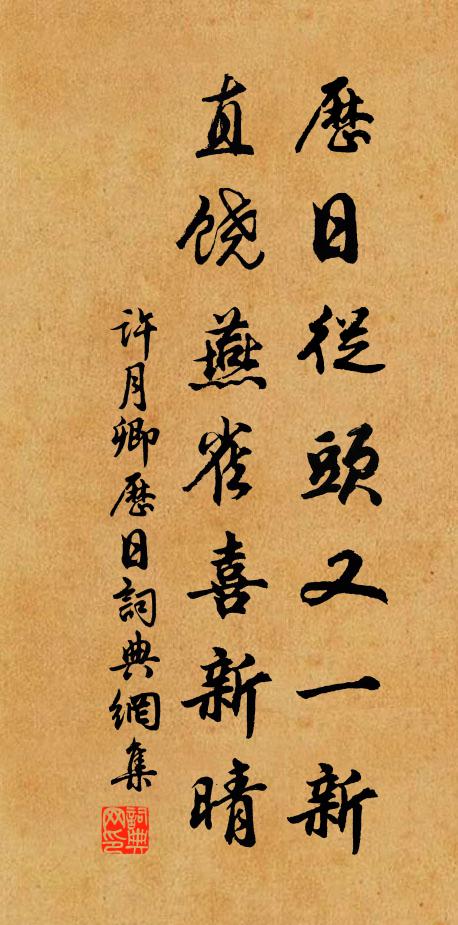 歷日從頭又一新
直饶燕雀喜新晴
許月卿歷日詞典網集
詞典网印